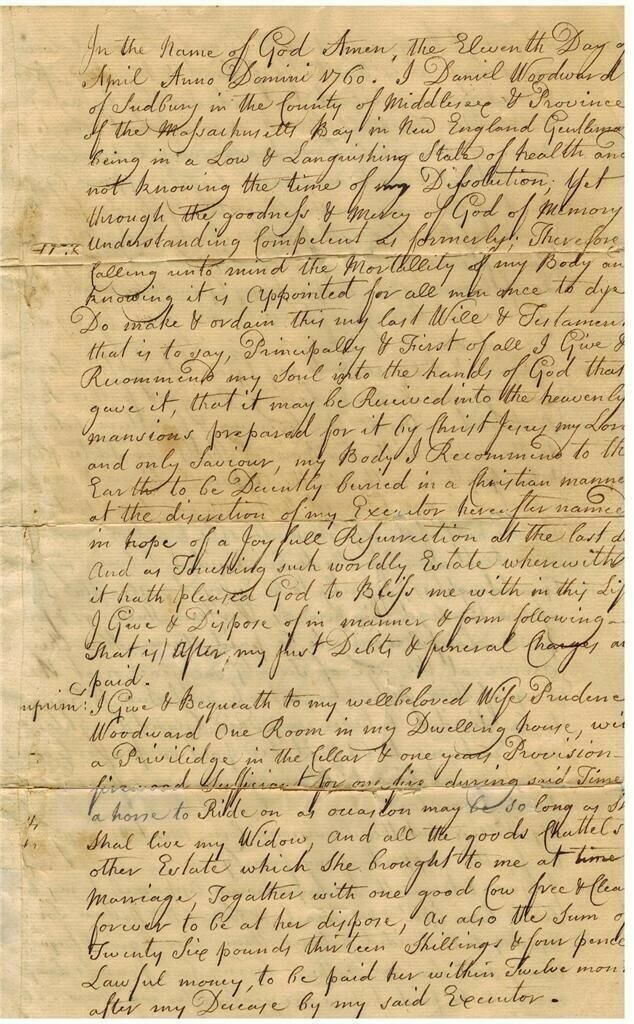 In the Name of God Amen, the Eleventh Day o
April Anno Domini 1760. I Daniel Woodward
of Sudbury in the County of Middlesex & Province
of the Massachusetts Bay in New England Gentlema
being in a Low & Languishing State of health and
not knowing the time of my Dissolution; Yet
through the goodness & Mercy of God of Memory
Understanding Competent as formerly: Therefore
Calling unto mind the Mortallity of my Body an
knowing it is Appointed for all men once to dye
Do make & ordain this my last Will & Testamen
that is to say, Principally & First of all I Give &
Recommend my Soul into the hands of God that
gave it, that it may be Received into the heavenly
mansions prepared for it by Christ Jesus my Lor
and only Saviour, my Body I Recommend to th
Earth to be Decently buried in a Christian manne
at the discretion of my Executor hereafter named
in hope of a Joyfull Resurrection at the last d
And as Touching such worldly Estate wherewith
it hath pleased God to Bless me with in this Lif
I Give & Dispose of in manner & form following
That is, After my just Debts & funeral Charges a
paid.
mprim: I Give & Bequeath to my wellbeloved Wife Prudenc
Woodward One Room in my Dwelling house, wi
a Privilidge in the Cellar & one years Provision
firewood Sufficient for one fire during said Time
a horse to Ride on as occasion may be so long as s
Shal live my Widow, and all the goods Chattels
other Estate which She brought to me at time
Marriage, Togather with one good Cow free & Clea
forever to be at her dispose, As also the Sum o
Twenty Six pounds thirteen Shillings & four pence
Lawful money, to be paid her within Twelve mon
after my Decease by my said Executor.